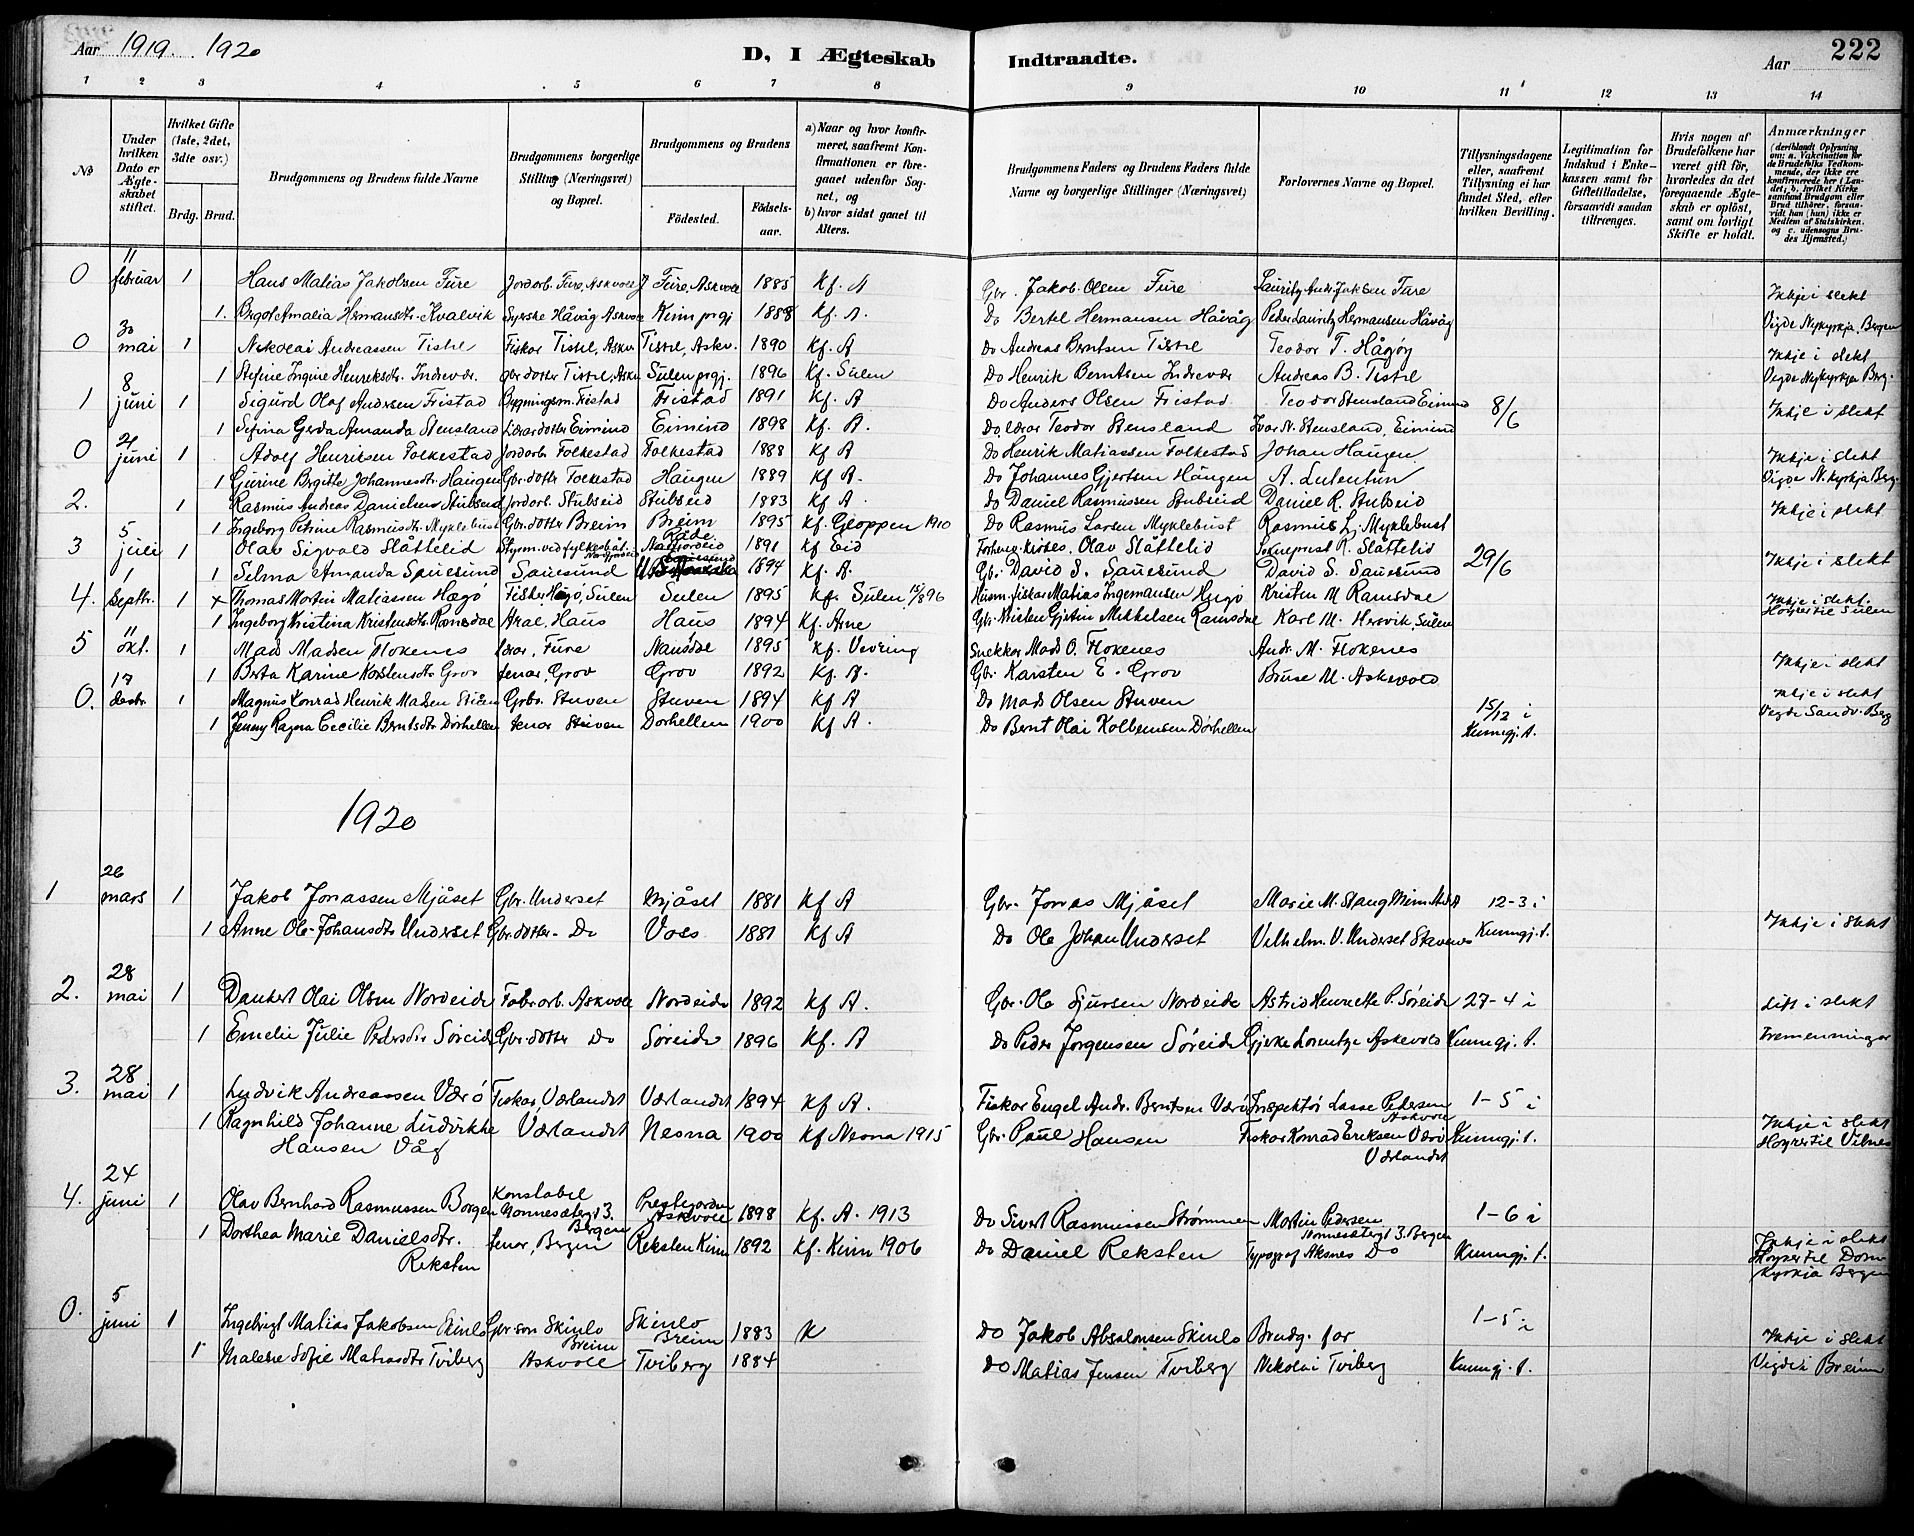 Aar 1919. 1920
D, I Ægteskab Indtraadte.
Aar 222
1 2 3 4 5 6 7 8 9 10 11 12 13 14
No
Under hvilken Dato er Ægteskabet stiftet.
Hvilket Gifte (1ste, 2det, 3die osv.)
Brdg. Brud.
Brudgommens og Brudens fulde Navne
Brudgommens borgerlige Stilling (Næringsvei) og Bopæl.
Brudgommens og Brudens
Fødested. Fødsels-aar.
a) Naar og hvor konfirmeret, saafremt Konfirmationen er foregaaet udenfor Sognet, og
b) hvor sidst gaaet til Alters.
Brudgommens Faders og Brudens Faders fulde Navne og borgerlige Stillinger (Næringsvei)
Forlovernes Navne og Bopæl.
Tillysningsdagene eller, saafremt Tillysning ei har fundet Sted, efter hvilken Bevilling.
Legitimation for Indskud i Enkekassen samt for Giftetilladelse, forsaavidt saadan tiltrænges.
Hvis nogen af Brudefolkene har været gift før, hvorledes da det foregaaende Ægteskab er opløst, samt om lovligt Skifte er holdt.
Anmærkninger (deriblandt Oplysning om: a. Vakcination for de Brudefolks Vedkommende, der ikke ere konfirmerede her i Landet; b. hvilket Kirkesamfund Brudgom eller Brud tilhører, forsaavidt han (hun) ikke er Medlem af Statskirken, og c. udensogns Brudes Hjemsted.)
0 11 februar 1 Hans Matias Jakobsen Fure Jordarb. Fure, Askvoll Fure, Askvoll 1885 Kf. A Gbr. Jakob Olsen Fure Lauritz Andr. Jakobsen Fure Ikkje i slekt
1. Amalia Hermansdtr. Kvalvik Håvåg Askvoll Kinn prgj 1888 Kf. A. Do Bertel Hermansen Håvåg Peder Lauritz Hermansen Håvåg Vigde Nykyrkja, Bergen
0 30 mai 1 Nikolai Andreassen Tistel Fiskar Tistel, Askv. Tistel, Askv. 1890 Kf. A Do Andreas Berntsen Tistel Teodor T. Hågøy Ikkje i slekt
1 Stefine Ingine Henriksdtr. Indrevær. Gbr dotter Tistel, Askv Sulen prgj. 1896 Kf. Sulen Do Henrik Berntsen Indrevær Andreas B. Tistel Vigde Nykyrkja Berg.
1 8 juni 1 Sigurd Olaf Andersen Fristad Bygningsm. Fristad Fristad 1891 Kf. A Do Anders Olsen Fristad Teodor Stensland Eimind 8/6 Ikkje i slekt
1 Gerda Amanda Stensland Lærardotter Eimind Eimind 1898 Kf. A. Do, lærar Teodor Stensland Ivar N. Stensland, Eimind
0 21 juni 1 Adolf Henriksen Folkestad Jordarb. Folkestad Folkestad 1888 Kf A Do Henrik Matiassen Folkestad Johan Haugen Ikkje i slekt
1 Gurine Birgitte Johannesdtr Haugen Gbr. dotter Folkestad Haugen 1889 Kf A. Do Johannes Gjertsen Haugen A. Lutentun Vigde N. kyrkja Berg.
2. 1 Rasmus Andreas Danielsen Stubseid Jordarb. Stubseid Stubseid 1883 Kf A. Do Daniel Rasmussen Stubseid Daniel R. Stubseid Ikkje i slekt
1 Ingeborg Petrine Rasmusdtr. Myklebust Gbr. dotter Breim Breim 1895 Kf. Gloppen 1910 Do Rasmus Larsen Myklebust Rasmus L. Myklebust
3 5 juli 1 Olav Sigvald Slåttelid Styrm. ved fylkesbåt. Nordfjordeid Nordfjordeid 1891 Kf Eid Olav Slåttelid Sokneprest R. Slåttelid 29/6 Ikkje i slekt
1 Selma Amanda Sauesund Sauesund Sauesund 1894 Kf. A. Gbr. David S. Sauesund David S. Sauesund
4. 1 septbr. 1 Thomas Martin Matiassen Hægø Fiskar, Hagø, Sulen Sulen 1895 Kf. Sulen 15/8 96 Husm. fiskar Matias Ingemansen Hugø Kristen M Ramsdal Ikkje i slekt. Høyrer til Sulen
1 Ingeborg Kristina Kristensdtr. Ramsdal Haus Haus 1894 Kf. Arne Gbr. Kristen Gjertin Mikkelsen Ramsdal Karl M. Hersvik, Sulen
5 11 okt. 1 Mads Madsen Flokenes Lærar, Fure Naustdal 1895 Kf. Vevring Snekkar Mads O. Flokenes Andr. M. Flokenes Ikkje i slekt
1 Berta Karine Karstensdtr Grov tenar, Grov Grov 1892 Kf. A. Gbr. Karsten E. Grov Bruse M. Askevold
0. 17 desbr. 1 Magnus Konrad Henrik Madsen Stuven Grbr. Stuven Stuven 1894 Kf A Do Mads Olsen Stuven Ikkje i slekt
1 Jenny Ragna Cecilie Berntsdtr. Dørhellen tenar Stuven Dørhellen 1900 Kf A. Do Bernt Olai Kolbensen Dørhellen 15/12 i Kunngj. A. Vigde Sandv. Berg
1920
1 26 mars 1 Jakob Jonassen Mjåset Gbr. Underset Mjåset 1881 Kf A Gbr. Jonas Mjåset Marie M. Slang 12-3 i Ikkje i slekt
1 Anne Ole-Johansdtr Underset Gbr. dotter - Do Voss 1881 Kf A Do Ole Johan Underset Vilhelm V. Underset Stavenes Kunngj. A.
2. 28 mai 1 Dankert Olai Olsen Nordeide Fabr. arb. Askvoll Nordeide 1892 Kf A. Gbr. Ole Sjursen Nordeide Astrid Henriette P. Søreide 27-4 i Litt i slekt
1 Emelie Julie Pedersdtr Søreide Gbr. dotter Do Søreide 1896 Kf. A Do Peder Jørgensen Søreide Gjerke Lorentze Askevold Kunngj. A. tremenningar
3. 28 mai 1 Ludvik Andreassen Værø Fiskar, Værlandet Værlandet 1894 Kf A. Fiskar Engel Andr. Berntsen Værø Inspektør Lasse Pedersen Askvoll 1-5 i Ikkje i slekt
1 Ragnhild Johanne Ludvikke Hansen Våg Værlandet Nesna 1900 Kf Nesna 1915 Gbr. Paul Hansen Fiskar Konrad Eriksen Værø Værlandet Kunngj. A. Høyrer til Vilnes
4. 24 juni 1 Olav Bernhard Rasmussen Borgen Konstabel Nonnesætergt 3. Bergen Prestejorden Askvoll 1898 Kf. A. 1913 Do Sivert Rasmussen Strømmen Martin Pedersen Nonnesætergt 3. Bergen 1-6 i Ikkje i slekt
1 Dorthea Marie Danielsdtr. Reksten tenar, Bergen Reksten Kinn 1892 Kf. Kinn 1906 Do Daniel Reksten Typograf Aksnes Do Kunngj. A. Høyrer til Domkyrkja Bergen
0. 5 juni 1 Ingebrigt Matias Jakobsen Skinlo Gbr son Skinlo Breim Skinlo Breim 1883 K Do Jakob Absalonsen Skinlo Brudg. far 1-5 i Ikkje i slekt
1 Malene Sofie Matiasdtr Tviberg Askvoll Tviberg 1884 Do Matias Jensen Tviberg Nikolai Tviberg Kunngj. A. Vigde i Breim